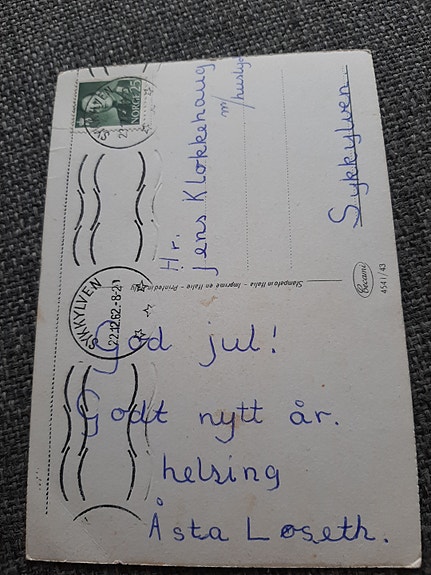 God jul!
Godt nytt år.
helsing
Åsta Løseth.
Hr.
Jens Klokkehaug
m/huslyd
Sykkylven.
NORGE 25
SYKKYLVEN
22.12.62.-8-21
Stampato in Italia - Imprimé en Italie - Printed in Italy
Cecami
4541/43